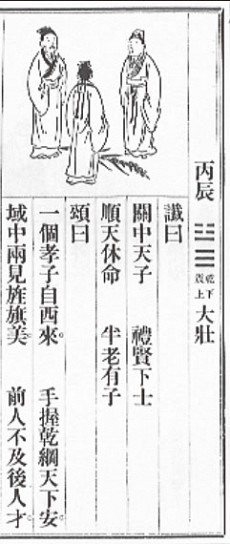 丙辰 ䷡ 乾下震上 大壯
讖曰
關中天子 禮賢下士
順天休命 半老有子
頌曰
一個孝子自西來 手握乾綱天下安
域中兩見旌旗美 前人不及後人才